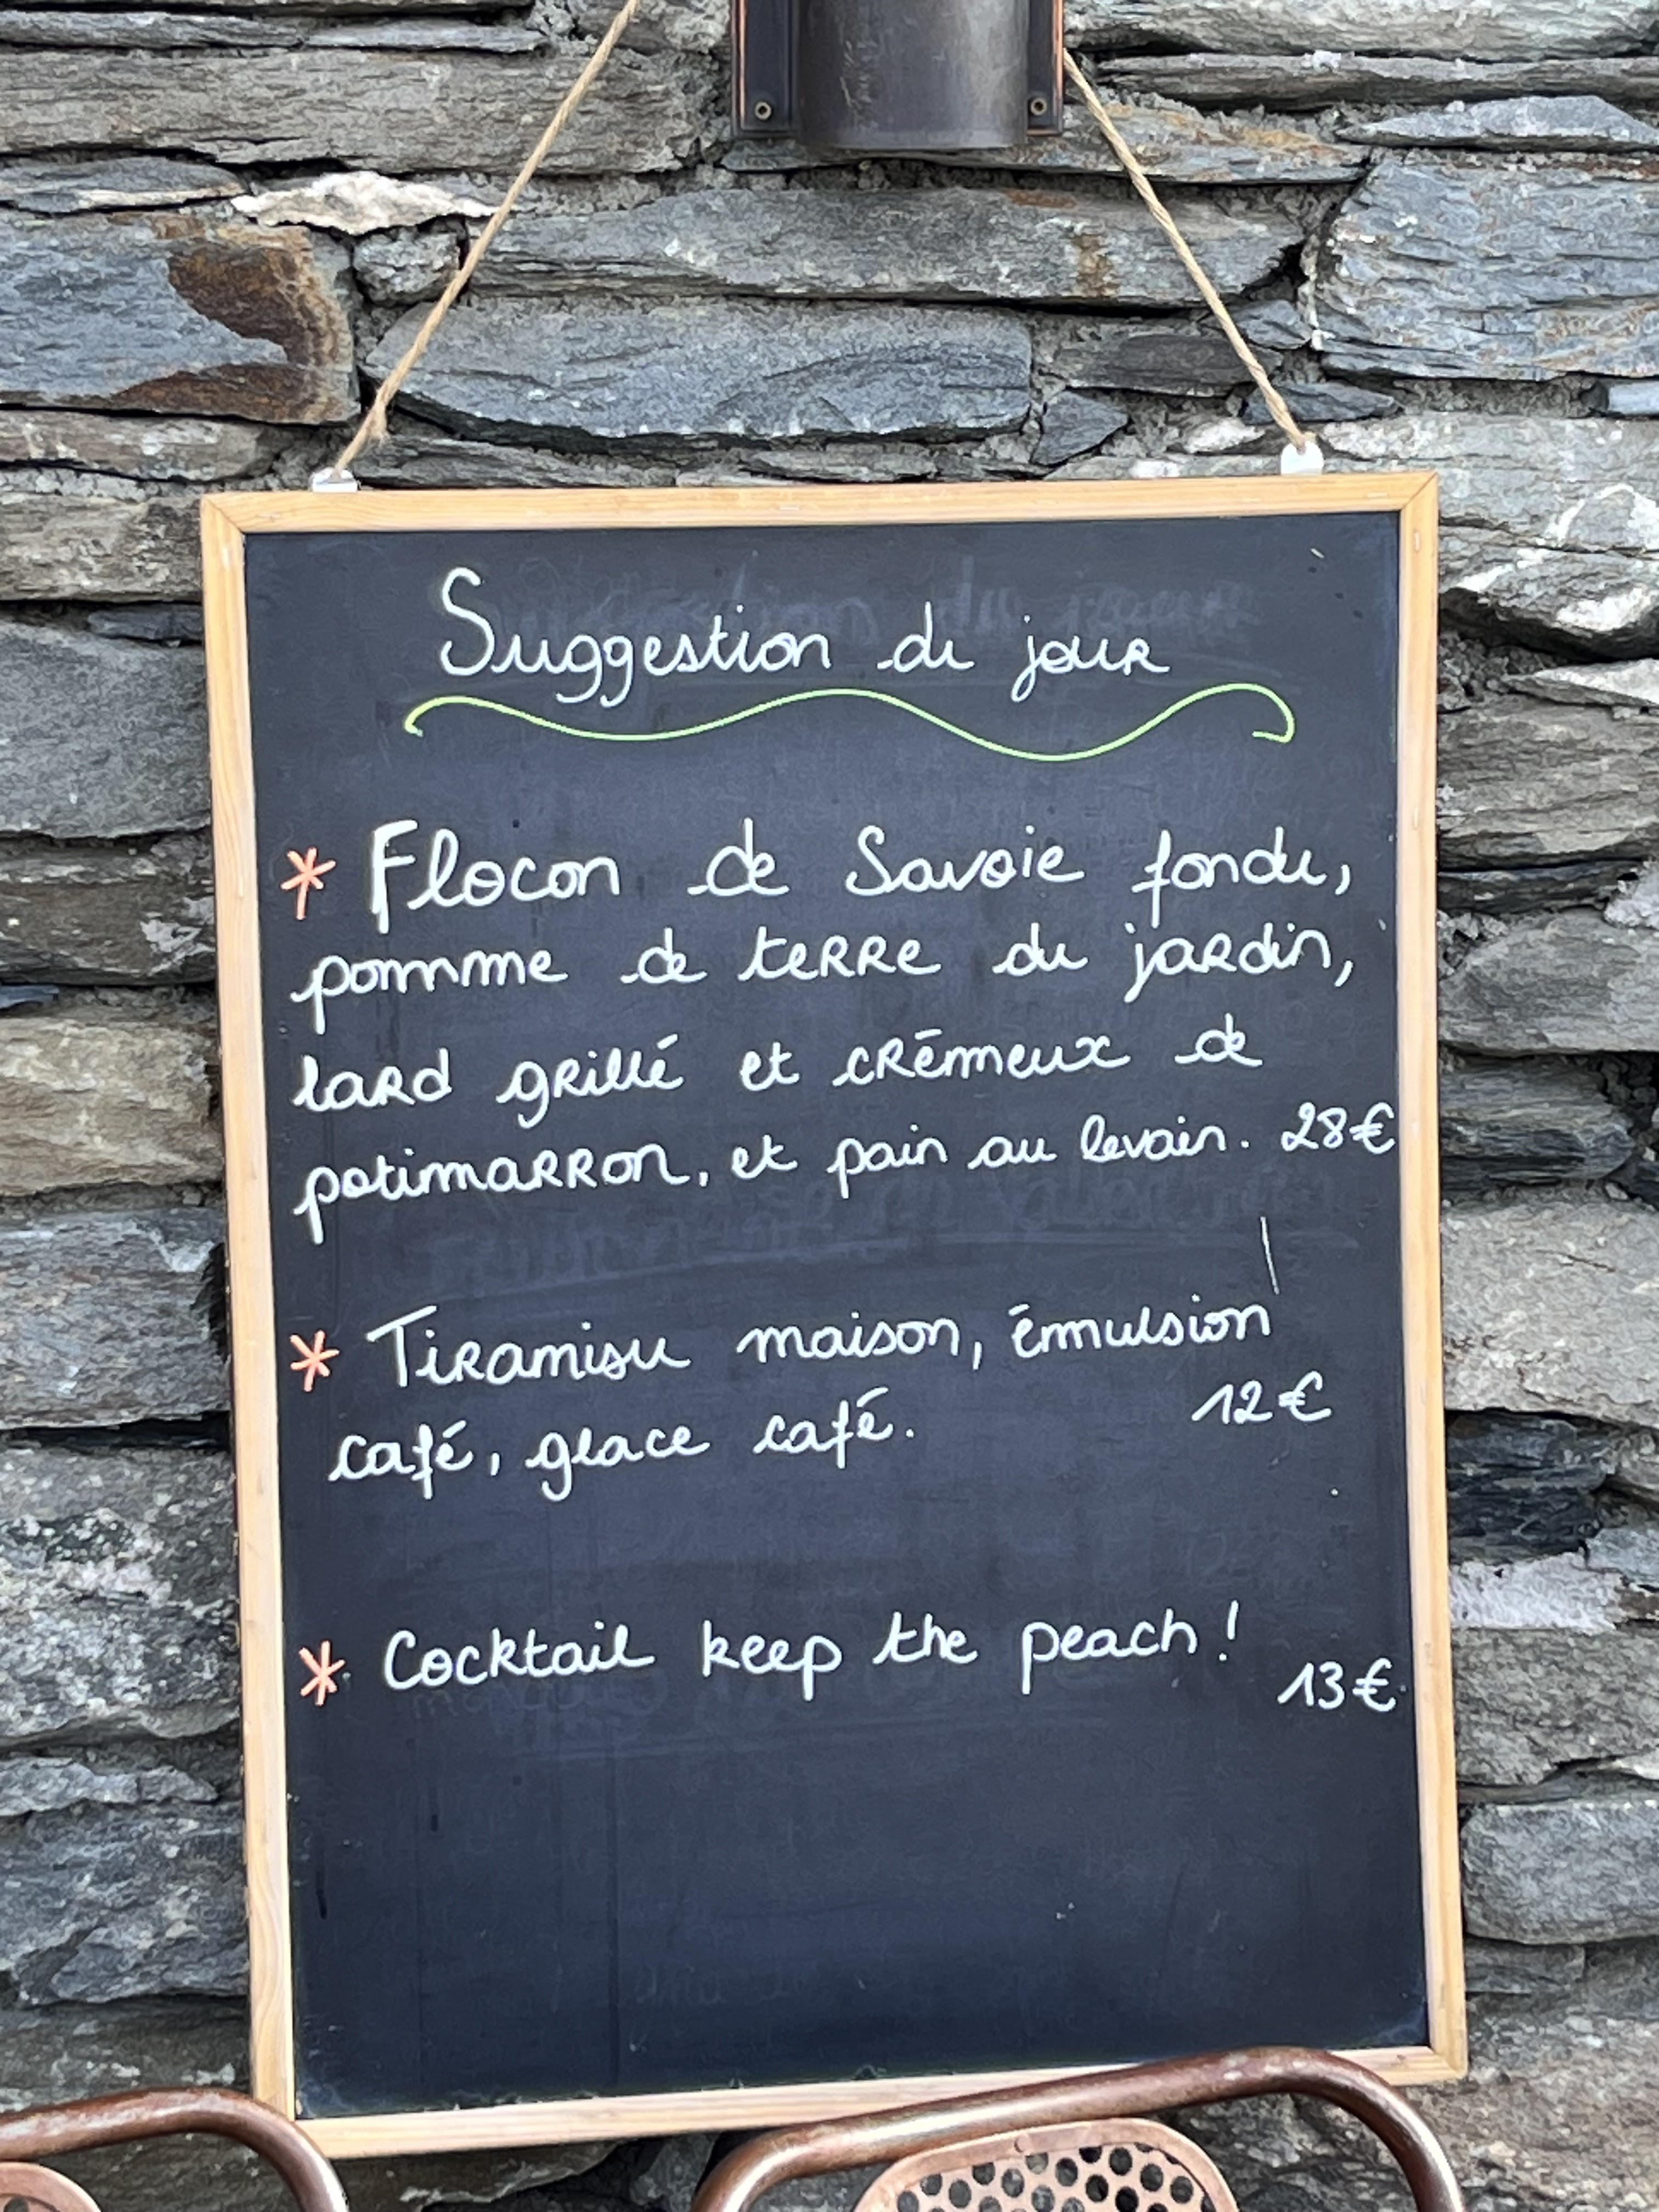 Suggestion du jour
* Flocon de Savoie fondu,
pomme de terre du jardin,
lard grillé et crémeux de
potimarron, et pain au levain. 28€
* Tiramisu maison, émulsion
café, glace café. 12€
* Cocktail keep the peach !
13€